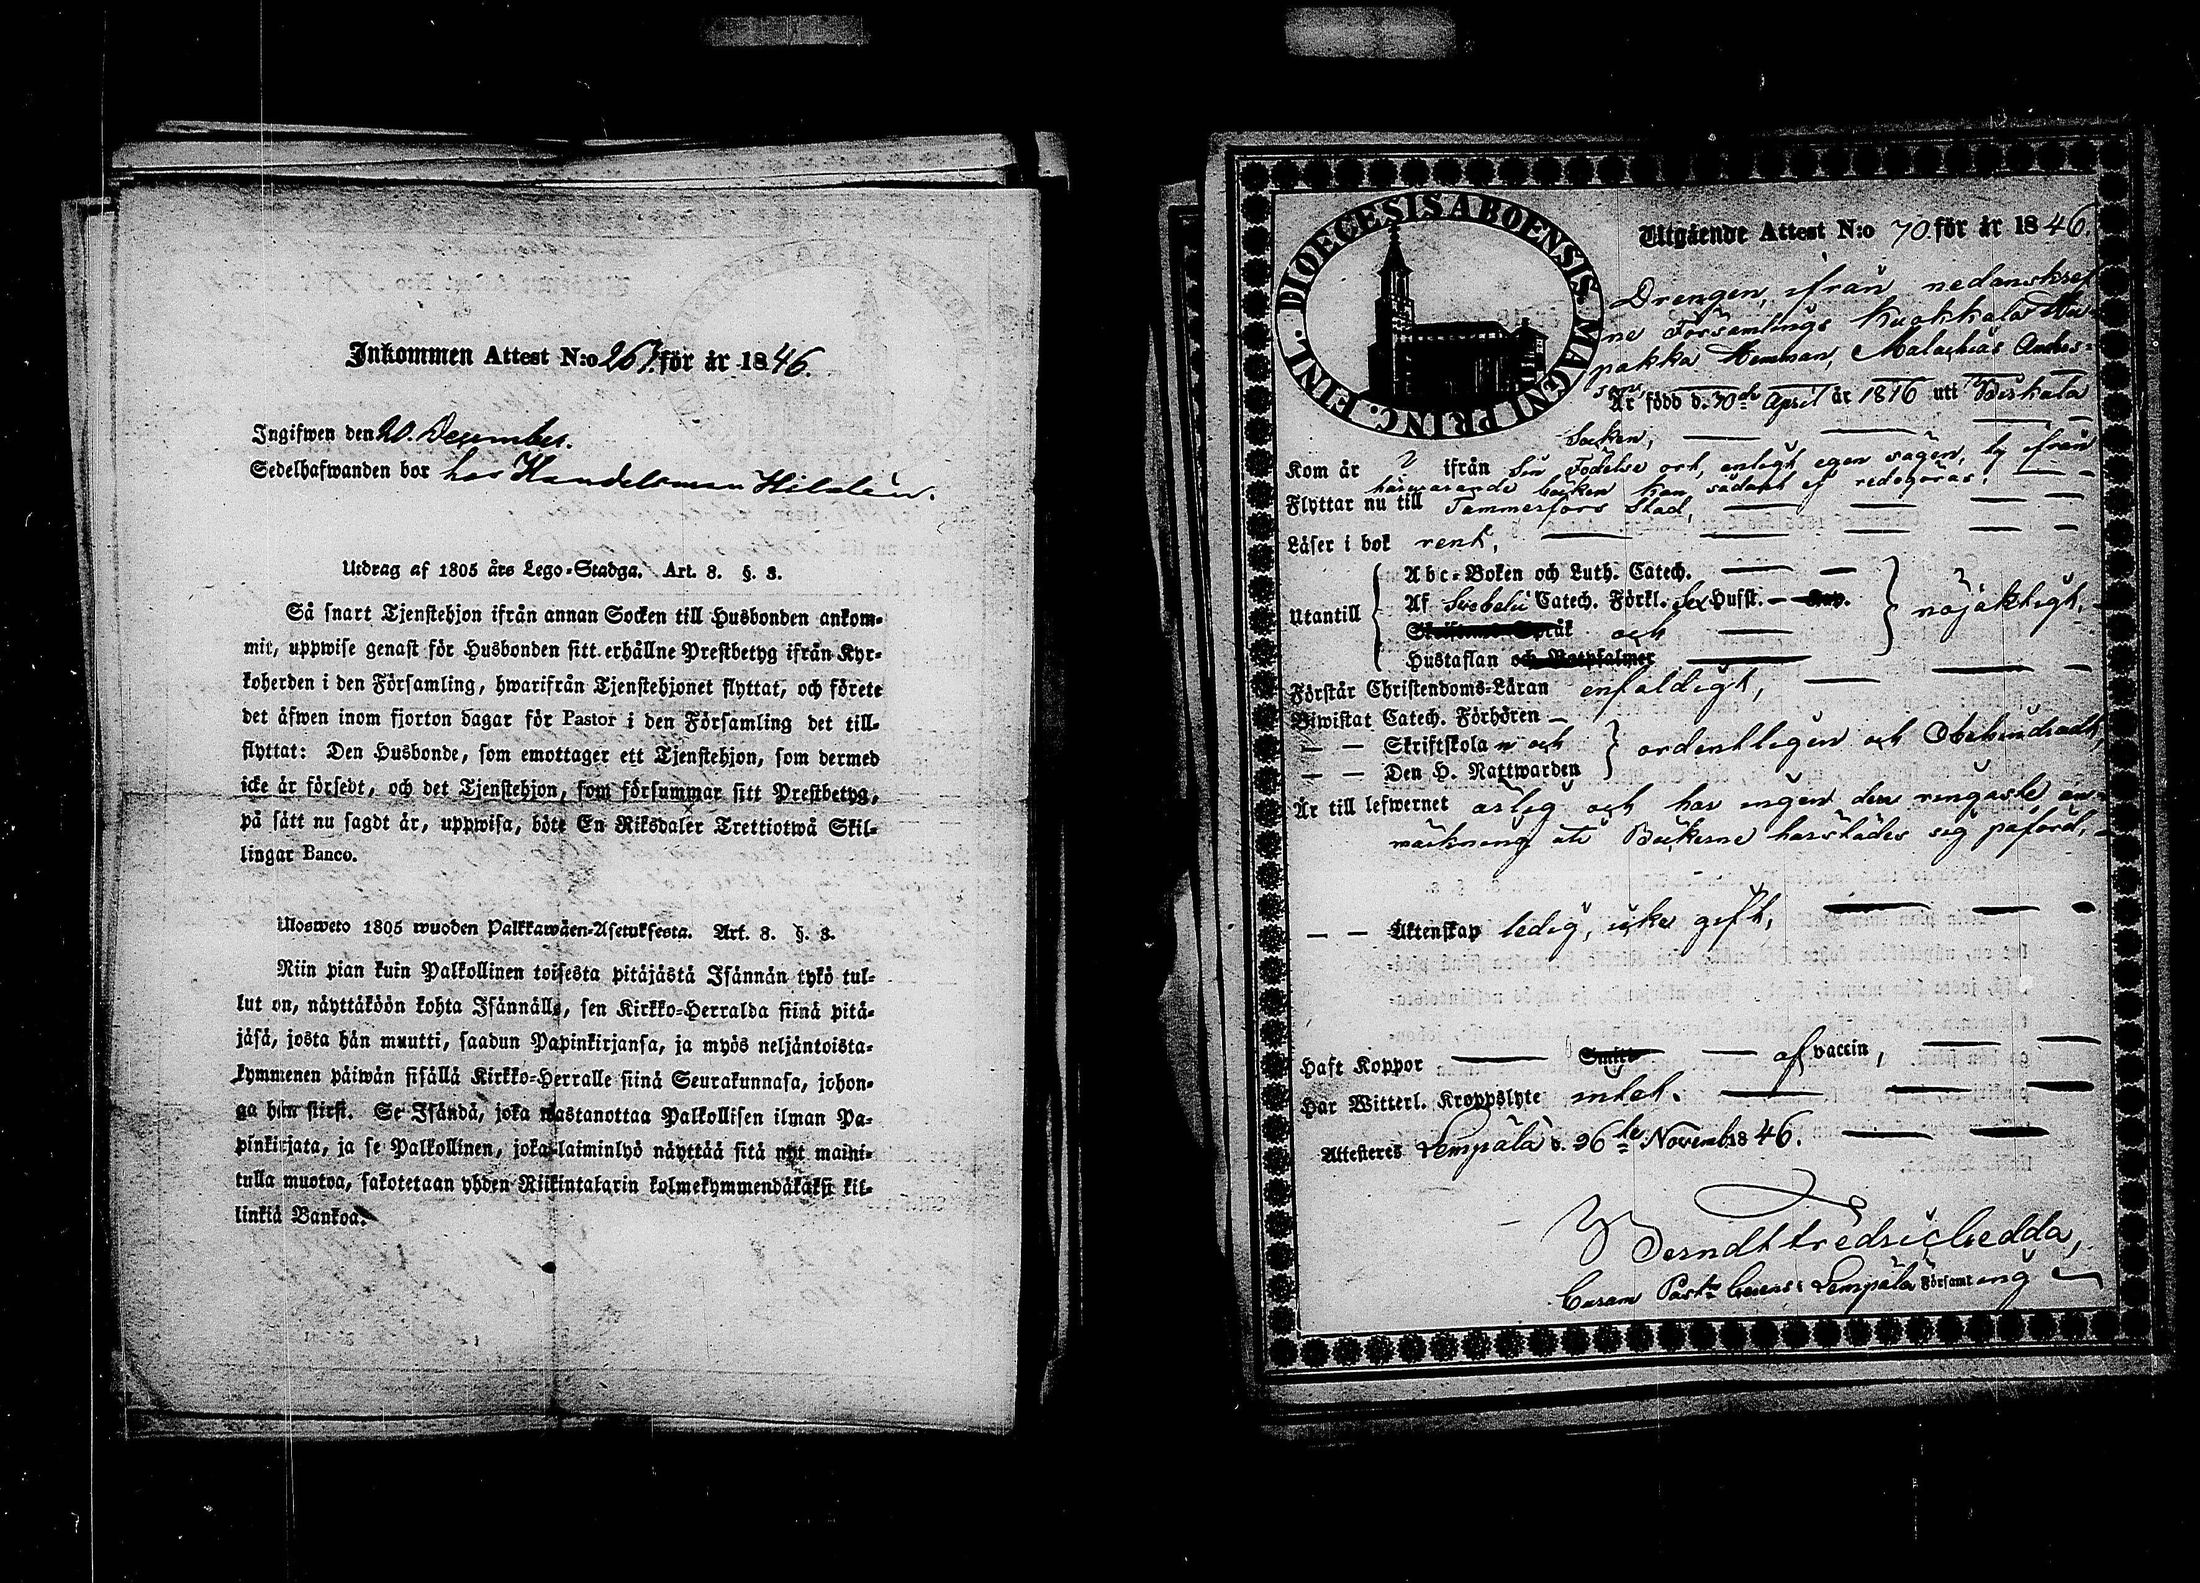 Inkommen Attest N:o 267. för år 1846.
Ingifwen den 20. December.
Sedelhafwanden bor hos Handelsman Hildén.
Utdrag af 1805 års Lego-Stadga. Art. 8. §. 3.
Så snart Tjenstehjon ifrån annan Socken till Husbonden ankom-
mit, uppwise genast för Husbonden sitt erhållne Prestbetyg ifrån Kyr-
koherden i den Församling, hwarifrån Tjenstehjonet flyttat, och förete
det äfwen inom fjorton dagar för Pastor i den Församling det till-
flyttat: Den Husbonde, som emottager ett Tjenstehjon, som dermed
icke är försedt, och det Tjenstehjon, som försummar sitt Prestbetyg,
på sätt nu sagdt är, uppwisa, böte En Riksdaler Trettiotwå Skil-
lingar Banco.
Ulosweto 1805 wuoden Palkkawäen-Asetuksesta. Art. 8. §. 3.
Niin pian kuin Palkollinen toisesta pitäjästä Isännän tykö tul-
lut on, näyttäköön kohta Isännälle, sen Kirkko-Herralda siinä pitä-
jäsä, josta hän muutti, saadun Papinkirjansa, ja myös neljäntoista-
kymmenen päiwän sisällä Kirkko-Herralle siinä Seurakunnasa, johon-
ga hän siirsi. Se Isändä, joka wastanottaa Palkollisen ilman Pa-
pinkirjata, ja se Palkollinen, joka laiminlyö näyttää sitä nyt maini-
tulla muotoa, sakotetaan yhden Riikintalarin kolmekymmendäkaksi kil-
linkiä Bankoa.
DIOECESIS ABOENSIS MAGNI PRINC. FINL.
Utgående Attest N:o 70. för år 1846.
Drengen, ifrån nedanskref
ne Församlings Kuokkala
pakka Hemman, Malachias Anders-
son, Är född d. 30de April år 1816 uti Weskala
Socken,
Kom år ? ifrån sin Födelse ort, enligt egen sägen, ty ifrån
härwarande böcker kan sådant ej redogöras.
Flyttar nu till Tammerfors Stad,
Läser i bok rent,
Utantill
Abc-Boken och Luth. Catech.
Af Svebelii Catech. Förkl. Sex Hufst.
och
Hustaflan
nöjaktigt.
Förstår Christendoms-Läran enfaldigt,
Biwistat Catech. Förhören
— — Skriftskolan och
— — Den H. Nattwarden
ordentligen och Obehindradt,
Är till lefwernet ärlig och har ingen den ringaste an-
märkning uti Böckerne härstädes sig påförd,
— — Äktenskap ledig, icke gift,
Haft Koppor af vaccin,
Har Witterl. Kroppslyte intet.
Attesteres Lempälä d. 26te Novemb. 1846.
Berndt Fredric Hedda,
Curam Past. Gerens i Lempälä Församling